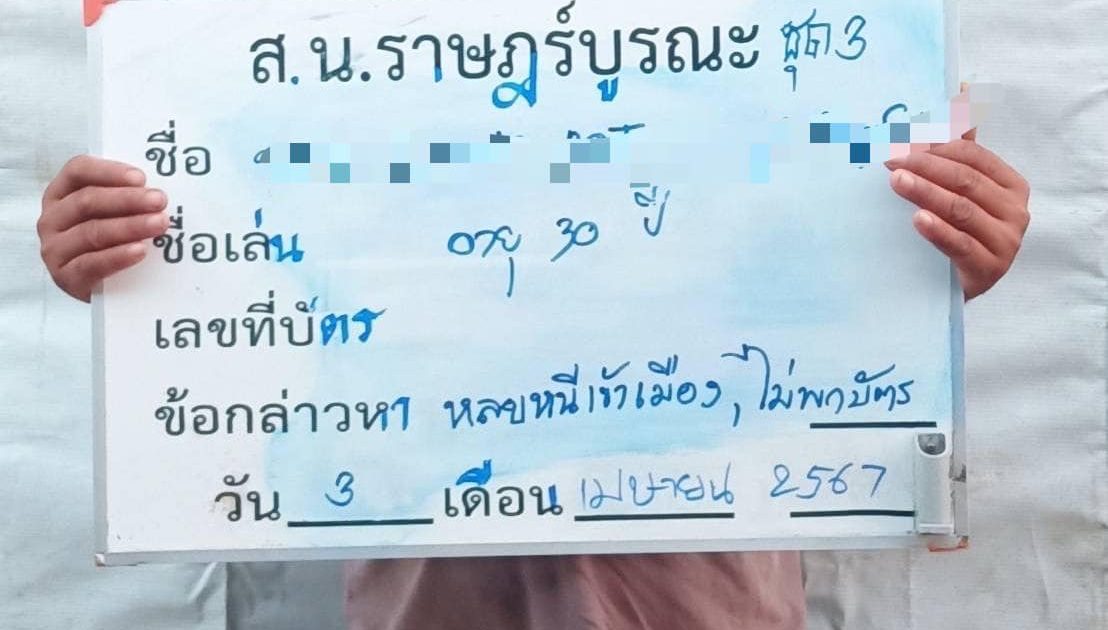 ส.น.ราษฎร์บูรณะ ชุด 3
ชื่อ
ชื่อเล่น อายุ 30 ปี
เลขที่บัตร
ข้อกล่าวหา หลบหนีเข้าเมือง, ไม่พกบัตร
วัน 3 เดือน เมษายน 2567